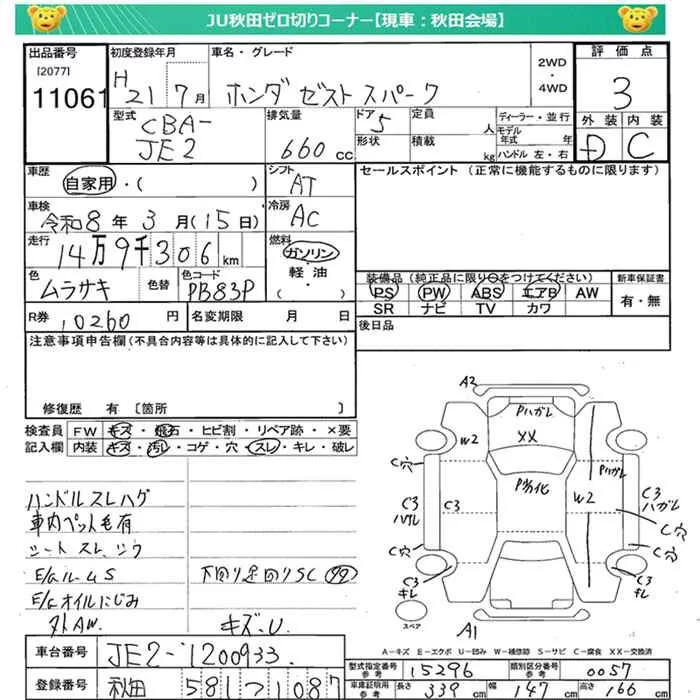 JU秋田ゼロ切りコーナー【現車：秋田会場】
出品番号 初度登録年月 車名・グレード 2WD・4WD 評価点
[2077]
11061 H21 7月 ホンダ ゼスト スパーク 3
型式 排気量 ドア 定員 ディーラー・並行 外装 内装
CBA-JE2 660cc 5 人 モデル年式 年 D C
形状 積載 kg ハンドル 左・右
車歴 シフト セールスポイント（正常に機能するものに限ります）
自家用・( ) AT
車検 冷房
令和8年3月(15日) AC
走行 燃料
14万9千306km ガソリン・軽油・( )
色 色替 色コード 装備品（純正品に限り○をつけてください） 新車保証書
ムラサキ PB83P PS PW ABS エアB AW 有・無
SR ナビ TV カワ
R券 10260円 名変期限 月 日 後日品
注意事項申告欄（不具合内容等は具体的に記入して下さい）
修復歴 有〔箇所 〕
検査員記入欄 FW キズ・飛石・ヒビ割・リペア跡・×要
内装 キズ・汚レ・コゲ・穴・スレ・キレ・破レ
ハンドルスレハゲ
車内ペット毛有
シートスレ、シワ
E/GルームS 下回り足回りSC
E/Gオイルにじみ
外AW. キズ・U
A2
Pハガレ
W2 XX
C穴 Pハガレ
P劣化
C3 ハガレ C3 W2 C3 ハガレ
C穴
C穴 C穴
C3 キレ C3 キレ
スペア A1
A－キズ E－エクボ U－凹み W－補修跡 S－サビ C－腐食 XX－交換済
車台番号 JE2-1200933
型式指定番号参考 15296 類別区分番号参考 0057
登録番号 秋田 581 つ 1087
車庫証明用参考 長さ 339cm 幅 147cm 高さ 166cm